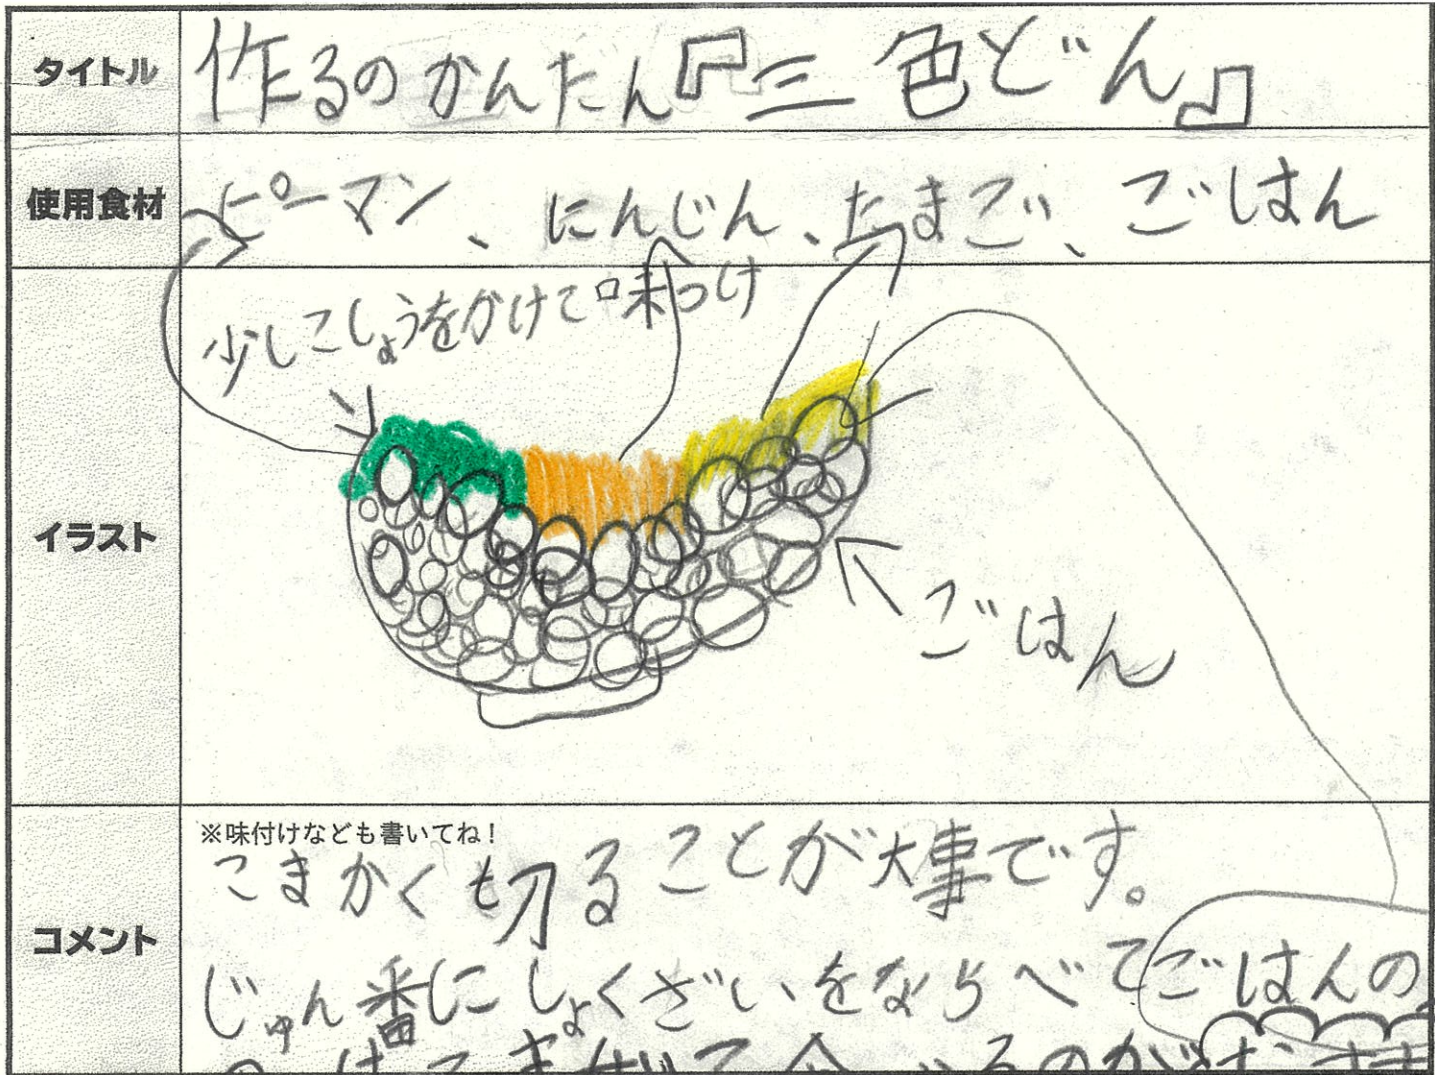 タイトル
作るのかんたん『三色どん』
使用食材
ピーマン、にんじん、たまご、ごはん
少しこしょうをかけて味つけ
イラスト
ごはん
※味付けなども書いてね!
こまかく切ることが大事です。
コメント
じゅん番にしょくざいをならべてごはんの